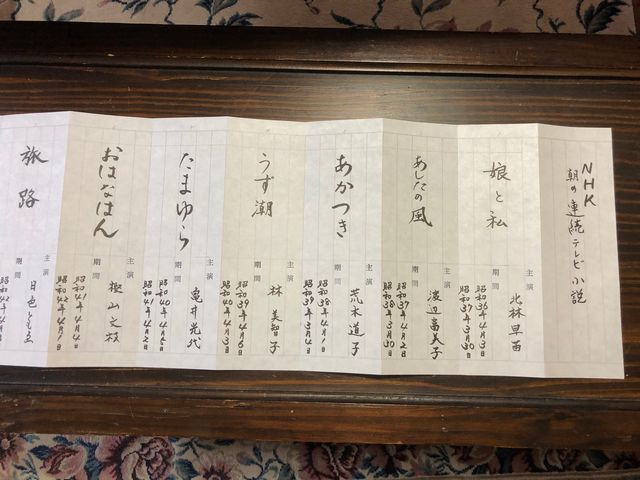 NHK
朝の連続テレビ小説
娘と私
主演 北林早苗
期間 昭和36年4月3日
昭和37年3月30日
あしたの風
主演 渡辺富美子
期間 昭和37年4月2日
昭和38年3月30日
あかつき
主演 荒木道子
期間 昭和38年4月1日
昭和39年3月4日
うず潮
主演 林美智子
期間 昭和39年4月6日
昭和40年4月3日
たまゆら
主演 亀井光代
期間 昭和40年4月5日
昭和41年4月2日
おはなはん
主演 樫山文枝
期間 昭和41年4月4日
昭和42年4月1日
旅路
主演 日色ともゑ
期間 昭和42年4月